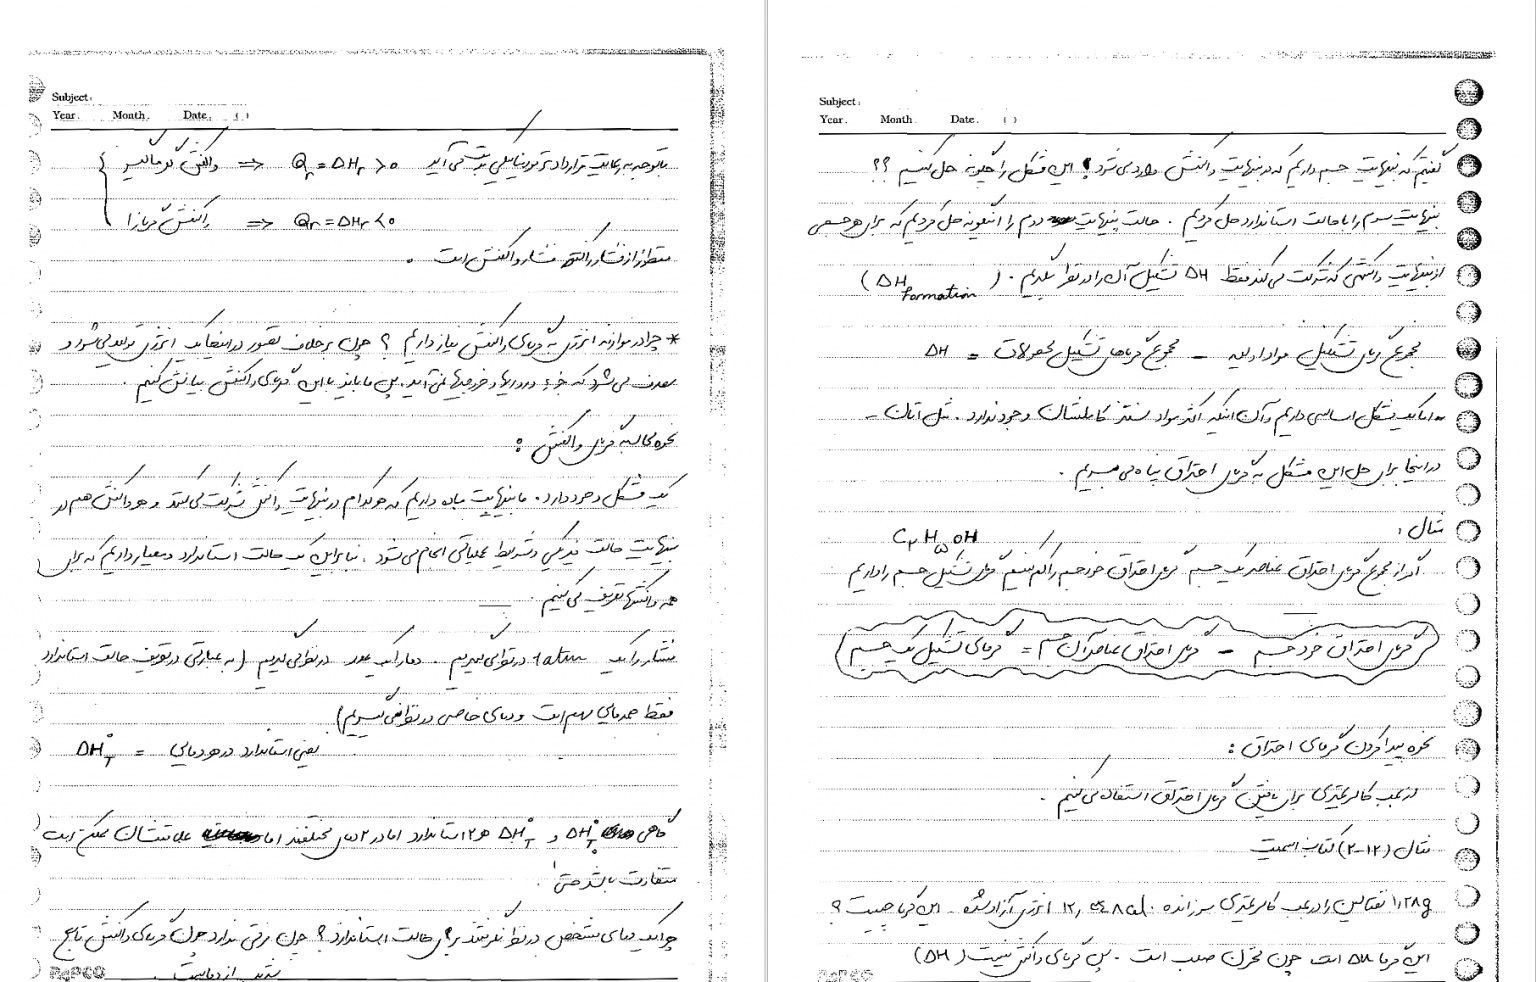 Subject:
Year. Month. Date. ( )
با توجه به رعایت قرارداد ترمودینامیکی بدست می آید Qr = ΔHr > 0 ⇒ واکنش گرماگیر
Qr = ΔHr < 0 ⇒ واکنش گرمازا
منظور از فشار واکنش است .
* چرا در موازنه انرژی به گرمای واکنش نیاز داریم ؟ چون برخلاف تصور در اینجا یک انرژی تولید می شود و
مصرف می شود که جزء ورودیها و خروجیها نمی آید. پس ما باید با این گرمای واکنش بیانش کنیم .
نحوه محاسبه گرمای واکنش :
یک مشکل وجود دارد . ما بینهایت ماده داریم که هر کدام در بینهایت واکنش شرکت می کنند و هر واکنش هم در
بینهایت حالت فیزیکی و شرایط عملیاتی انجام می شود . بنابراین یک حالت استاندارد و معیار داریم که برای
همه واکنشها تعریف می کنیم .
فشار را یک 1 atm در نظر می گیریم . دما را یک عدد در نظر نمی گیریم (به عبارتی در تعریف حالت استاندارد
فقط همدمایی مهم است و دمای خاصی در نظر نمی گیریم)
یعنی استاندارد در هر دمایی = ΔH°T
گاهی ΔH°T و ΔH°T هر ۲ استاندارد اما در ۲ دمای مختلفند اما علامتشان ممکن است
متفاوت باشد حتی .
چرا یک دمای مشخص در نظر نگرفتند برای حالت استاندارد ؟ چون فرقی ندارد چون گرمای واکنش تابع
شدید از دما نیست .
PAPCO
Subject:
Year. Month. Date. ( )
گفتیم که بینهایت جسم داریم که در بینهایت واکنش وارد می شود ! این مشکل را چگونه حل کنیم ؟؟
بینهایت سوم را با حالت استاندارد حل کردیم . حالت بینهایت دوم را اینگونه حل کردیم که برای هر جسمی
از بینهایت واکنشی که شرکت می کند فقط ΔH تشکیل آن را در نظر بگیریم . (ΔH Formation)
مجموع گرمای تشکیل مواد اولیه - مجموع گرماهای تشکیل محصولات = ΔH
اما یک مشکل اساسی داریم و آن اینکه اکثر مواد سنتز کاملشان وجود ندارد . مثل اتان -
در اینجا برای حل این مشکل به گرمای احتراق پناه می بریم .
مثال : C₂H₅OH
اگر از مجموع گرمای احتراق عناصر یک جسم گرمای احتراق خود جسم را کم کنیم گرمای تشکیل جسم را داریم
گرمای احتراق خود جسم - گرمای احتراق عناصر آن جسم = گرمای تشکیل یک جسم
نحوه پیدا کردن گرمای احتراق :
از بمب کالریمتری برای یافتن گرمای احتراق استفاده می کنیم .
مثال (۲-۱۲) کتاب اسمیت
۱٫۲۸g نفتالین را در بمب کالریمتری سوزانده . cal انرژی آزاد شده . این گرما چیست ؟
این گرما ΔU است چون مخزن صلب است . پس گرمای واکنش نیست (ΔH)
PAPCO